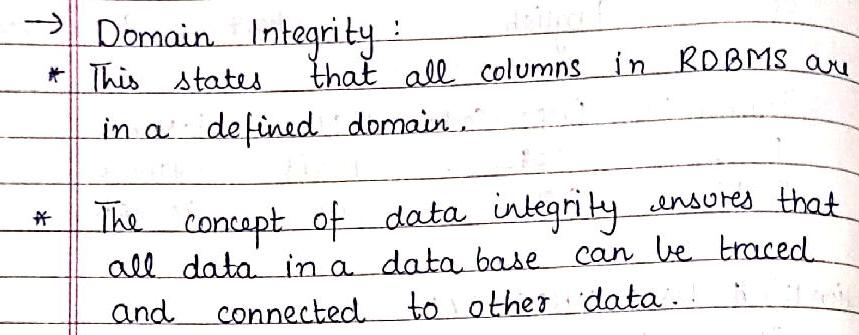 → Domain Integrity :
* This states that all columns in RDBMS are
in a defined domain.
* The concept of data integrity ensures that
all data in a data base can be traced
and connected to other data.